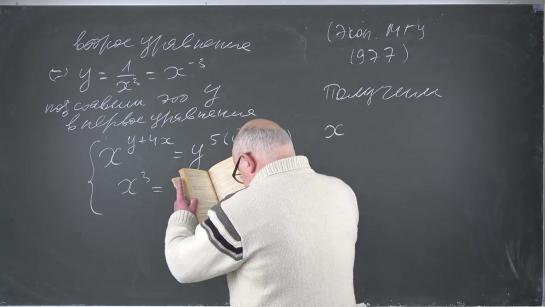 второе уравнение
(=) y = 1/x³ = x⁻³
подставим это y
в первое уравнение
x^(y+4x) = y^5(
x³ =
(Экон. МГУ
1977)
Получим
x